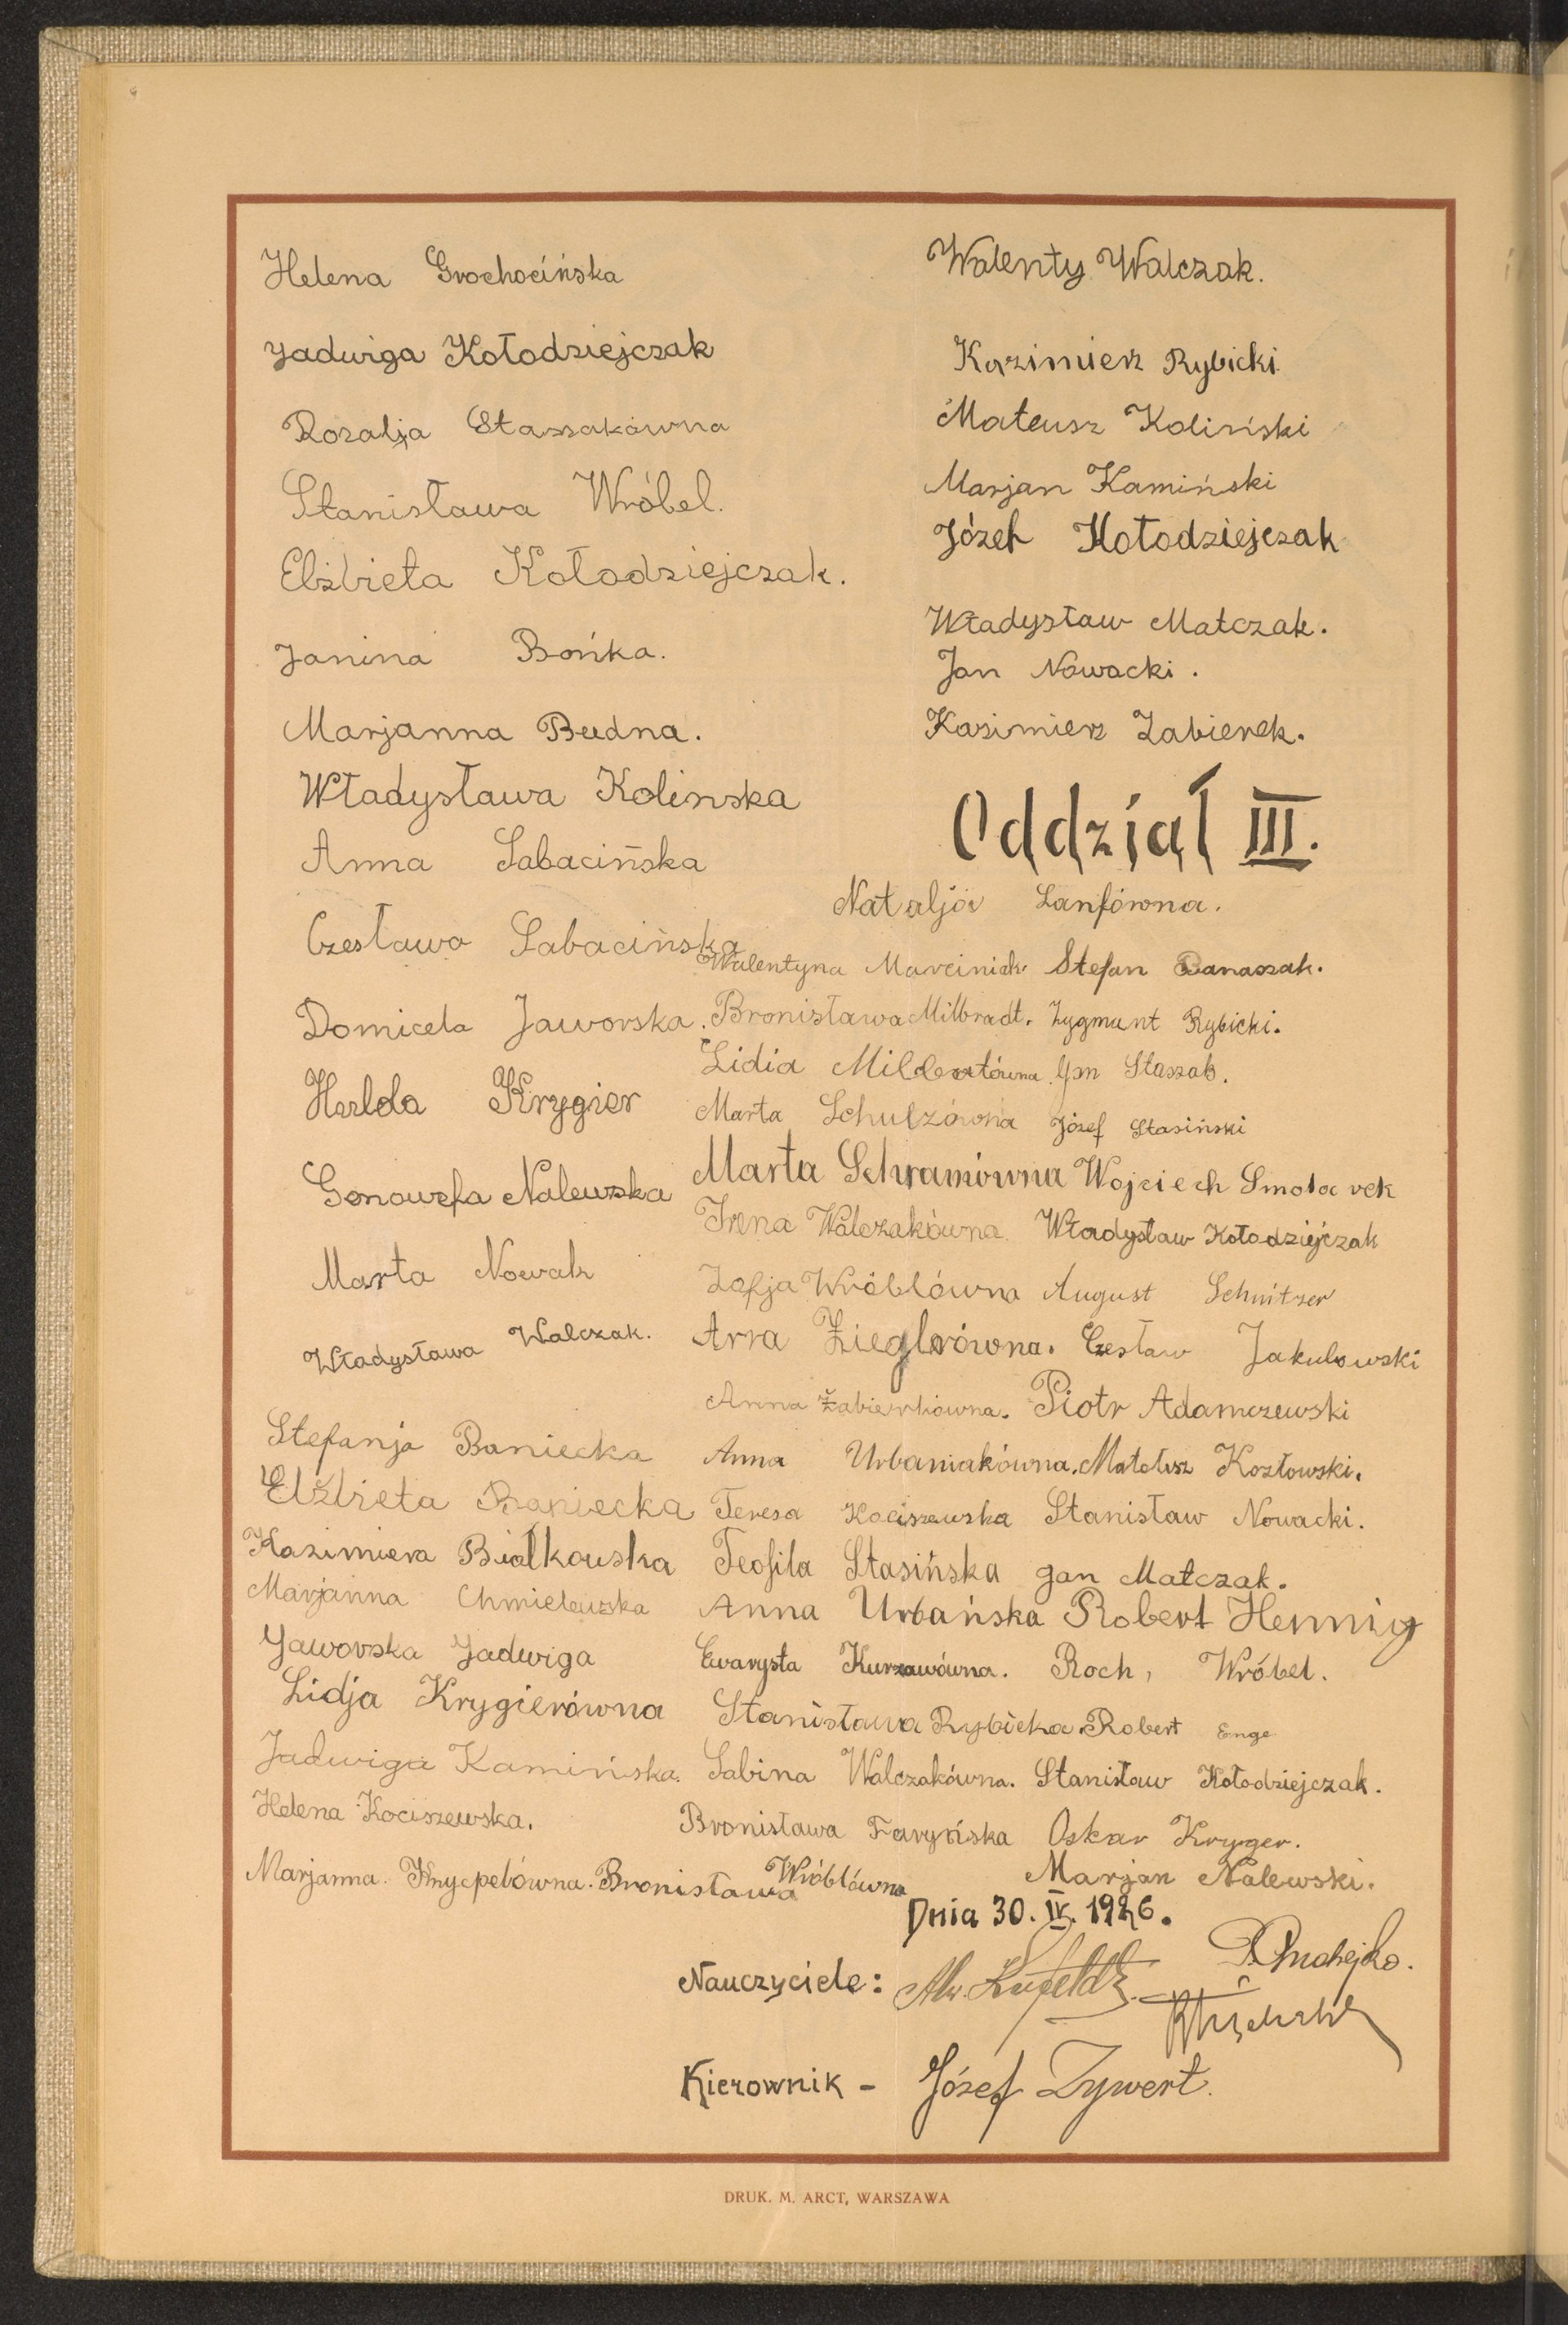 Helena Grochocińska
Jadwiga Kołodziejczak
Rozalja Staszakówna
Stanisława Wróbel.
Elżbieta Kołodziejczak.
Janina Bońka.
Marjanna Budna.
Władysława Kolinska
Anna Sabacińska
Czesława Sabacińska
Domicela Jaworska.
Herlda Krygier
Genowefa Nalewska
Marta Nowak
Władysława Walczak.
Stefanja Baniecka
Elżbieta Baniecka
Kazimiera Białkowska
Marjanna Chmielewska
Jaworska Jadwiga
Lidja Krygierówna
Jadwiga Kamińska.
Helena Kociszewska.
Marjanna. Knycpelówna.
Walenty Walczak.
Kazimierz Rybicki
Mateusz Koliński
Marjan Kamiński
Józef Kołodziejczak
Władysław Matczak.
Jan Nowacki.
Kazimierz Zabierek.
Oddział III.
Natalja Lanfówna.
Walentyna Marciniak
Bronisława Milbradt.
Lidia Mildeatówna.
Marta Schulzówna
Marta Schramówna
Irena Walczakówna
Zofja Wróblówna
Anna Zieglerówna.
Anna Żabierkówna.
Anna Urbaniakówna.
Teresa Kociszewska
Teofila Stasińska
Anna Urbańska
Ewarysta Kurzawówna.
Stanisława Rybicka.
Sabina Walczakówna.
Bronisława Faryńska
Bronisława Wróblówna
Stefan Banaszak.
Zygmunt Rybicki.
Jan Staszak.
Józef Stasiński
Wojciech Smolarek
Władysław Kołodziejczak
August Schnitzer
Czesław Jakubowski
Piotr Adamczewski
Mateusz Kozłowski.
Stanisław Nowacki.
Jan Matczak.
Robert Hennig
Roch, Wróbel.
Robert Enge
Stanisław Kołodziejczak.
Oskar Kryger.
Marjan Nalewski.
Dnia 30. IV. 1926.
Nauczyciele:
Kierownik - Józef Zywert.
DRUK. M. ARCT, WARSZAWA